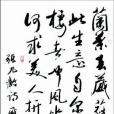 蘭葉春葳蕤
此生意自尔
棲者聞風坐
何求美人折
張九齡詩